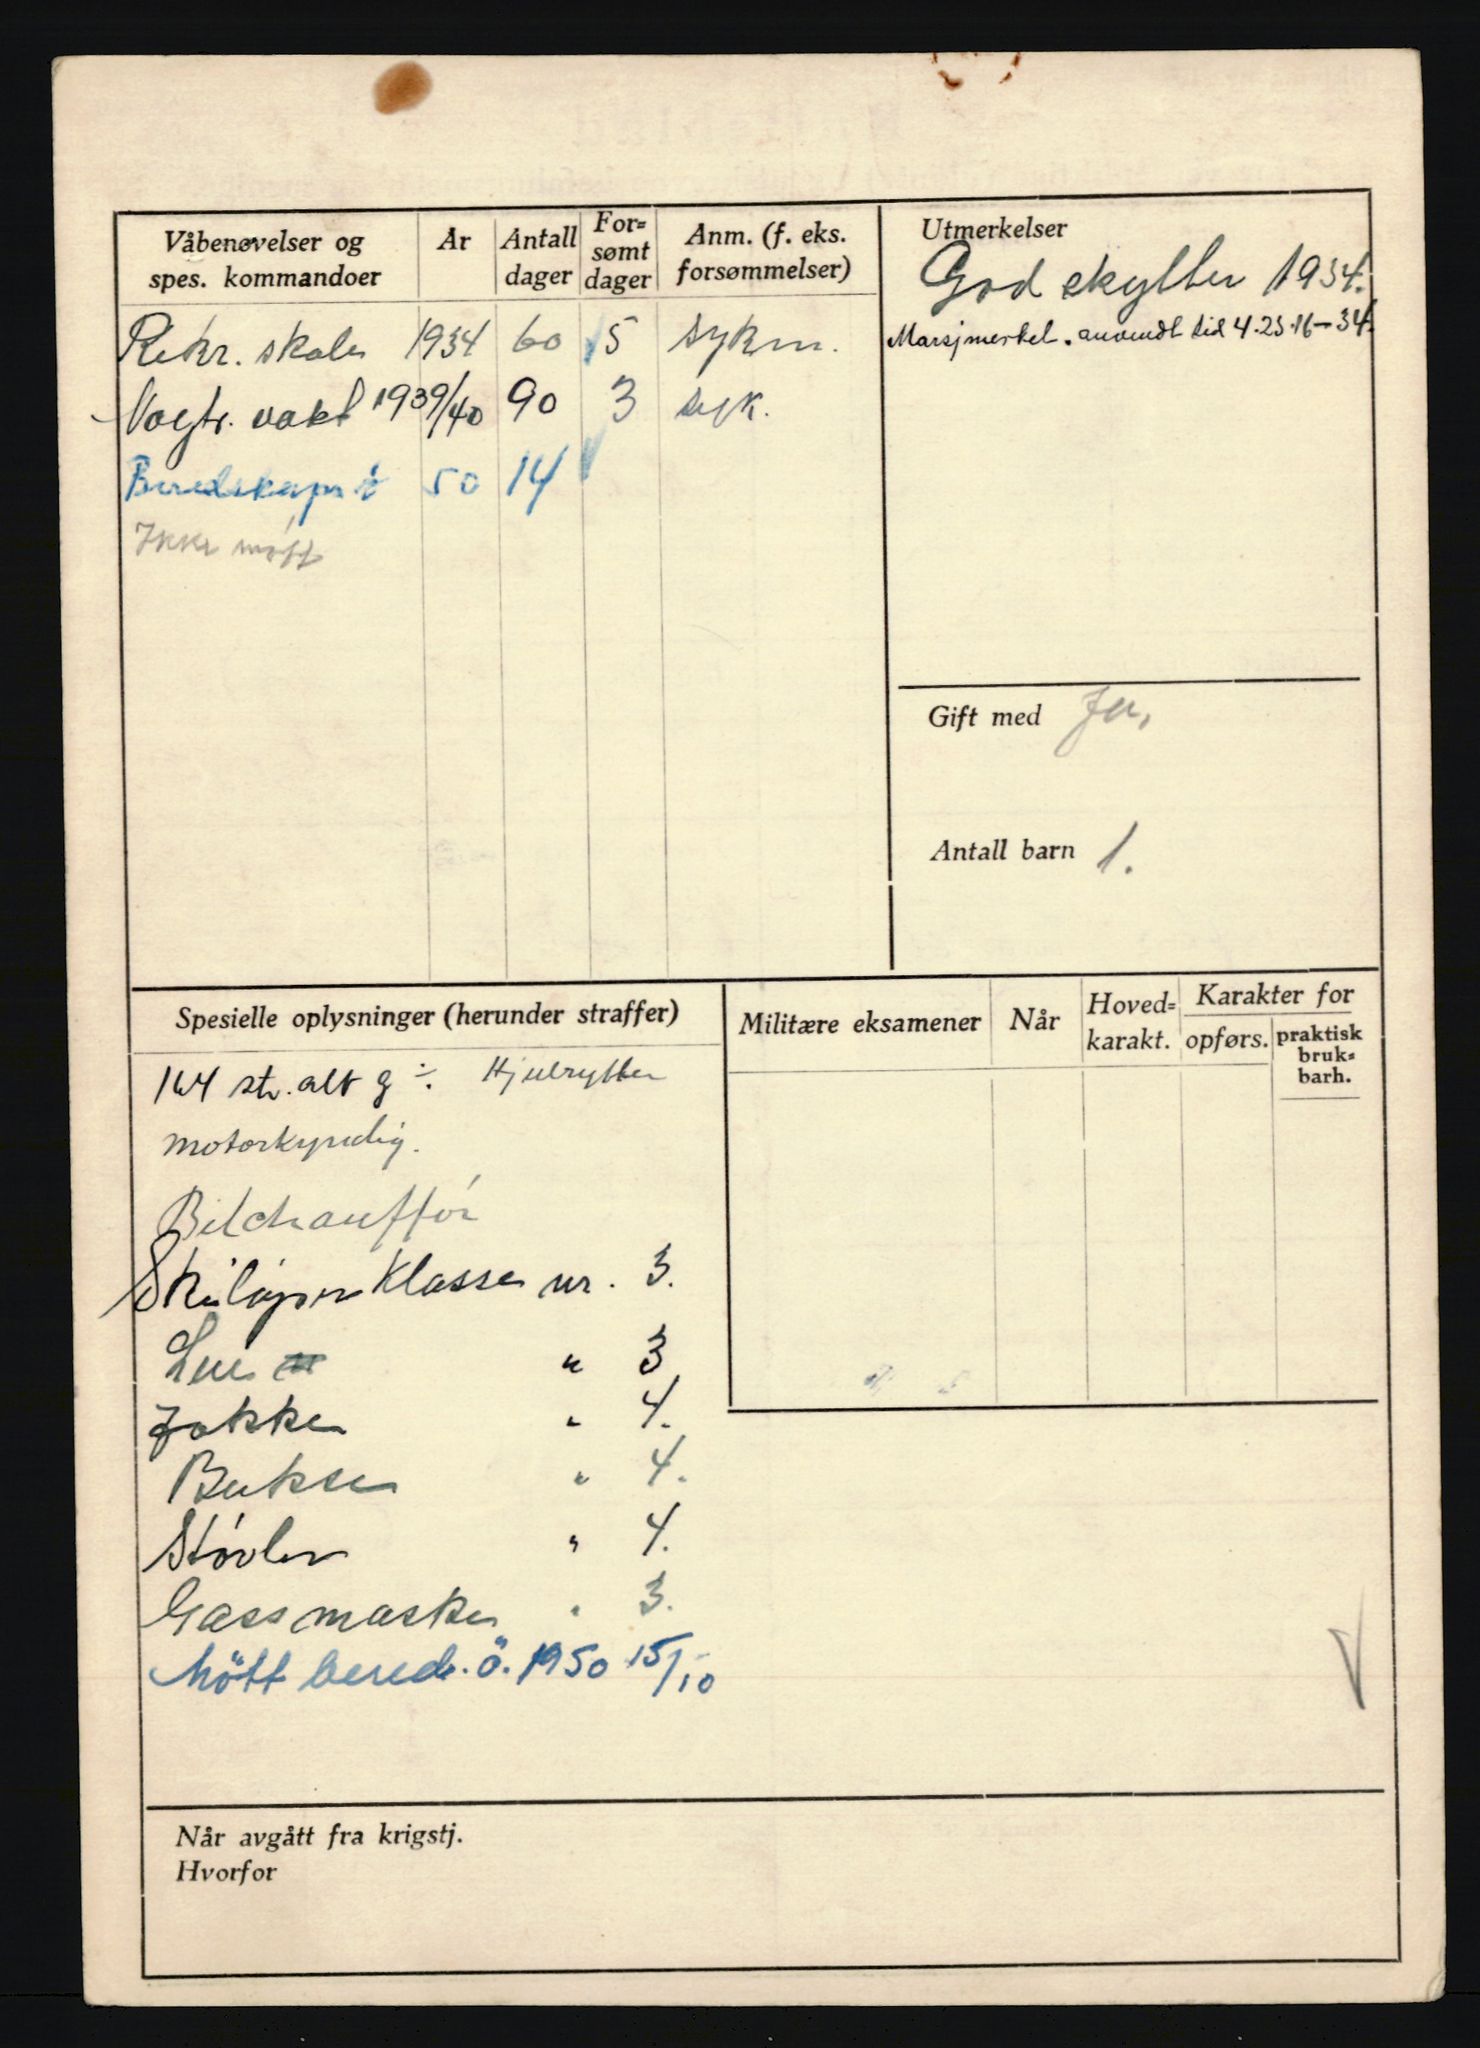 Våbenøvelser og spes. kommandoer | År | Antall dager | For= sømt dager | Anm. (f. eks. forsømmelser)
Rekr. skole 1934 60 5 sykm.
vakt 1939/40 90 3 syk.
Beredskaps ö 50 14
Ikke møtt
Utmerkelser
God skytter 1934.
Marsjmerket. anvendt tid 4.23.16-34.
Gift med Ja.
Antall barn 1.
Spesielle oplysninger (herunder straffer)
164 str. alt g ÷. Hjulrytter
motorkyndig.
Bilchauffør
Skiløper Klasse nr. 3.
Lue " 3
Jakke " 4.
Bukse " 4.
Støvler " 4.
Gassmaske " 3.
Mött bereds. ö. 1950 15/10
Militære eksamener | Når | Hoved= karakt. | Karakter for
opførs. | praktisk bruk= barh.
Når avgått fra krigstj.
Hvorfor